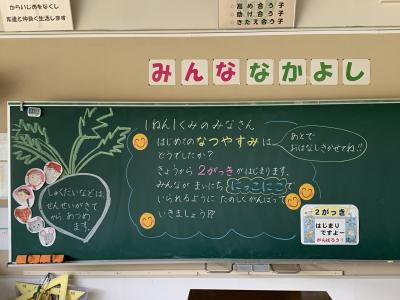 からいじめをなくし
友達と仲良く生活します
高め合う子
助け合う子
きたえ合う子
みんななかよし
1ねん1くみのみなさん
はじめてのなつやすみは
どうでしたか?
きょうから2がっきがはじまります。
みんながまいにちにっこにこで
いられるようにたのしくがんばって
いきましょう!!
あとで
おはなしきかせてね!!
しゅくだいなどは
せんせいがきて
から、あつめ
ます。
2がっき
はじまり
ですよー
がんばろう!